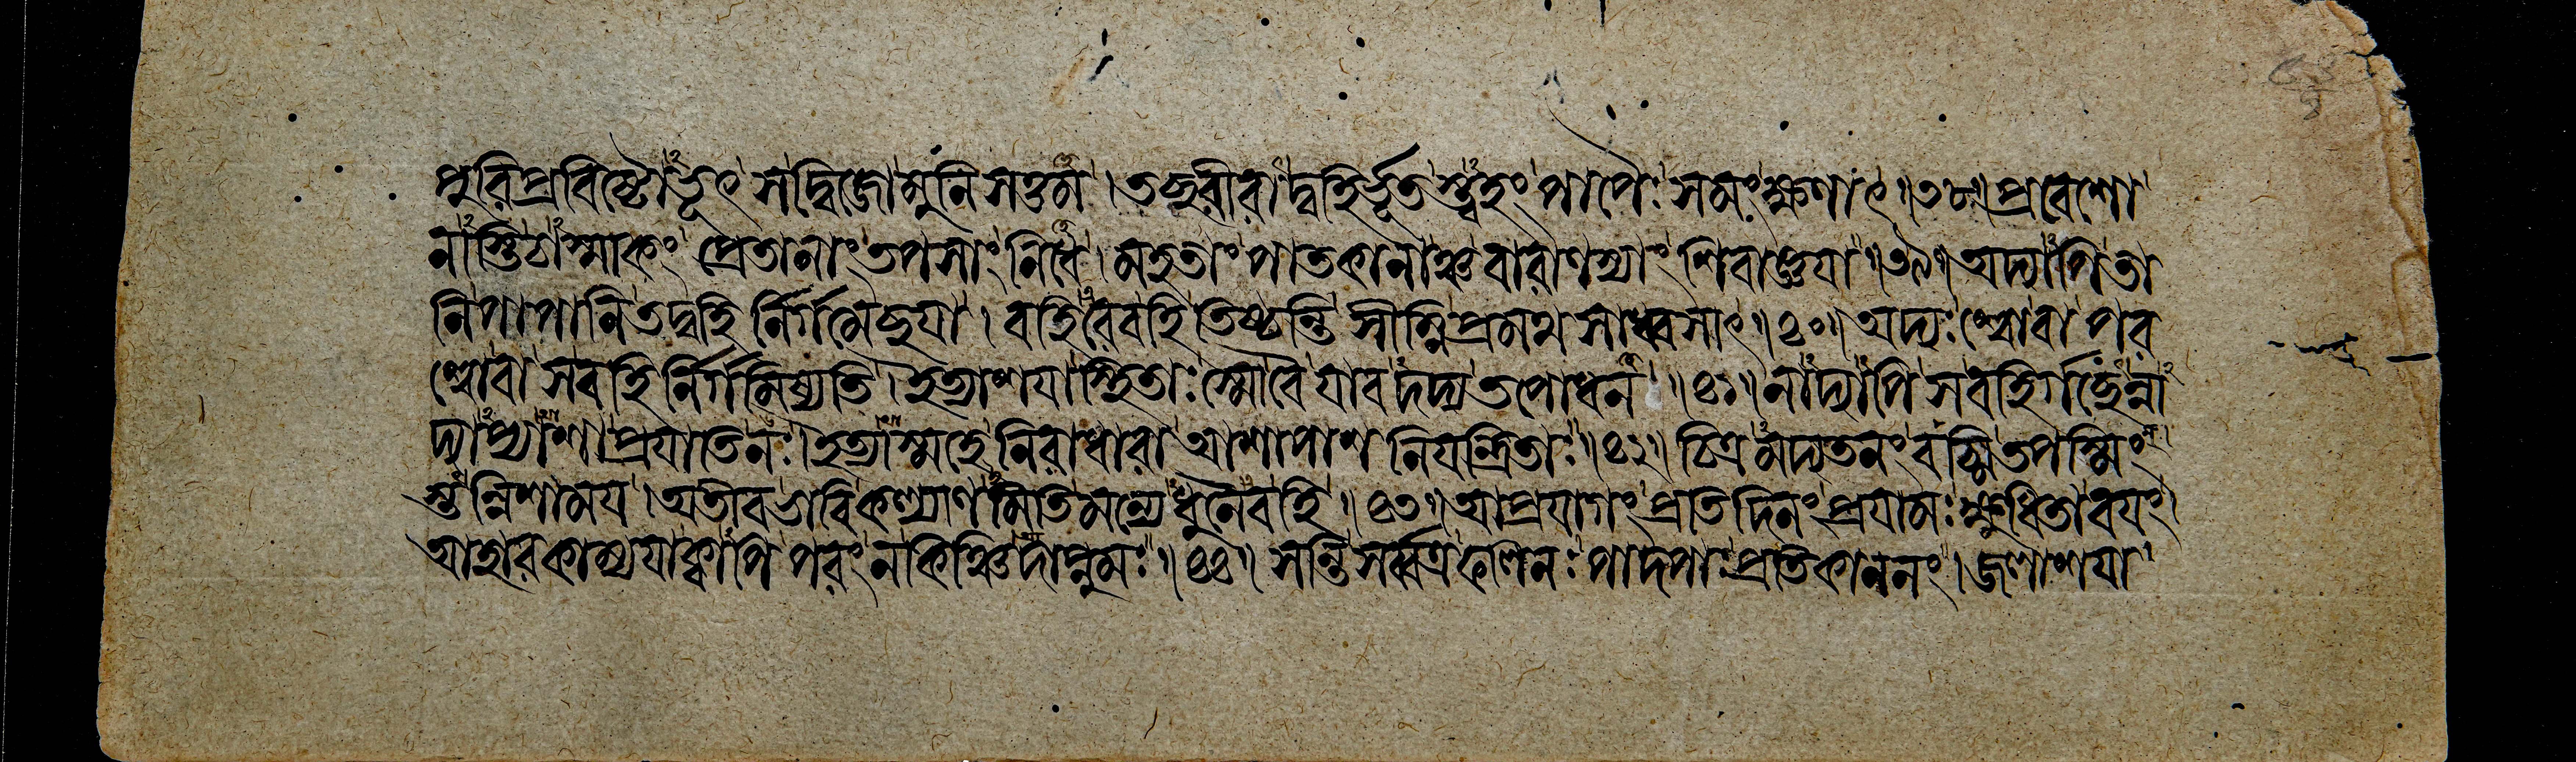 পুরিপ্রবিষ্টোভূৎ সদ্বিজোমুনিসত্তম । তচ্ছরীরাদ্বহির্ভূতস্ত্বহং পাপৈঃ সমংক্ষণাৎ ॥৩৮॥ প্রবেশো
নাস্তিচাস্মাকং প্রেতানাং তপসাং নিধে । মহতাং পাতকানাঞ্চ বারাণস্যাং শিবাজ্ঞয়া ॥৩৯॥ অদ্যাপিতা
নিপাপানিতদ্বহির্নির্গমেচ্ছয়া । বহিরেবহি তিষ্ঠন্তি সীম্নিপ্রমথসাধ্বসাৎ ॥৪০॥ অদ্যঃ শ্বোবা পর
শ্বোবা সবহির্নির্গমিষ্যতি । ইত্যাশয়াস্থিতাঃ স্মোবৈ যাবদদ্য তপোধন ॥৪১॥ নাদ্যাপি সবহির্গচ্ছেন্না
দ্যাপ্যাশাপ্রযাতিনঃ । ইত্যাস্মহে নিরাধারা আশাপাশ নিযন্ত্রিতাঃ ॥৪২॥ চিত্রমদ্যতনং বচ্মি তপস্মিং
স্তন্নিশাময় । অতীবভাবিকল্যাণমিতিমন্যেধুনৈবহি ॥৪৩॥ আপ্রয়াগং প্রতিদিনং প্রযামঃ ক্ষুধিতাবয়ং
আহারকাম্যয়াক্বাপি পরং নকিঞ্চিদাপ্নুমঃ ॥৪৪॥ সন্তি সর্ব্বত্রফলিনঃ পাদপা প্রতিকাননং । জলাশয়া